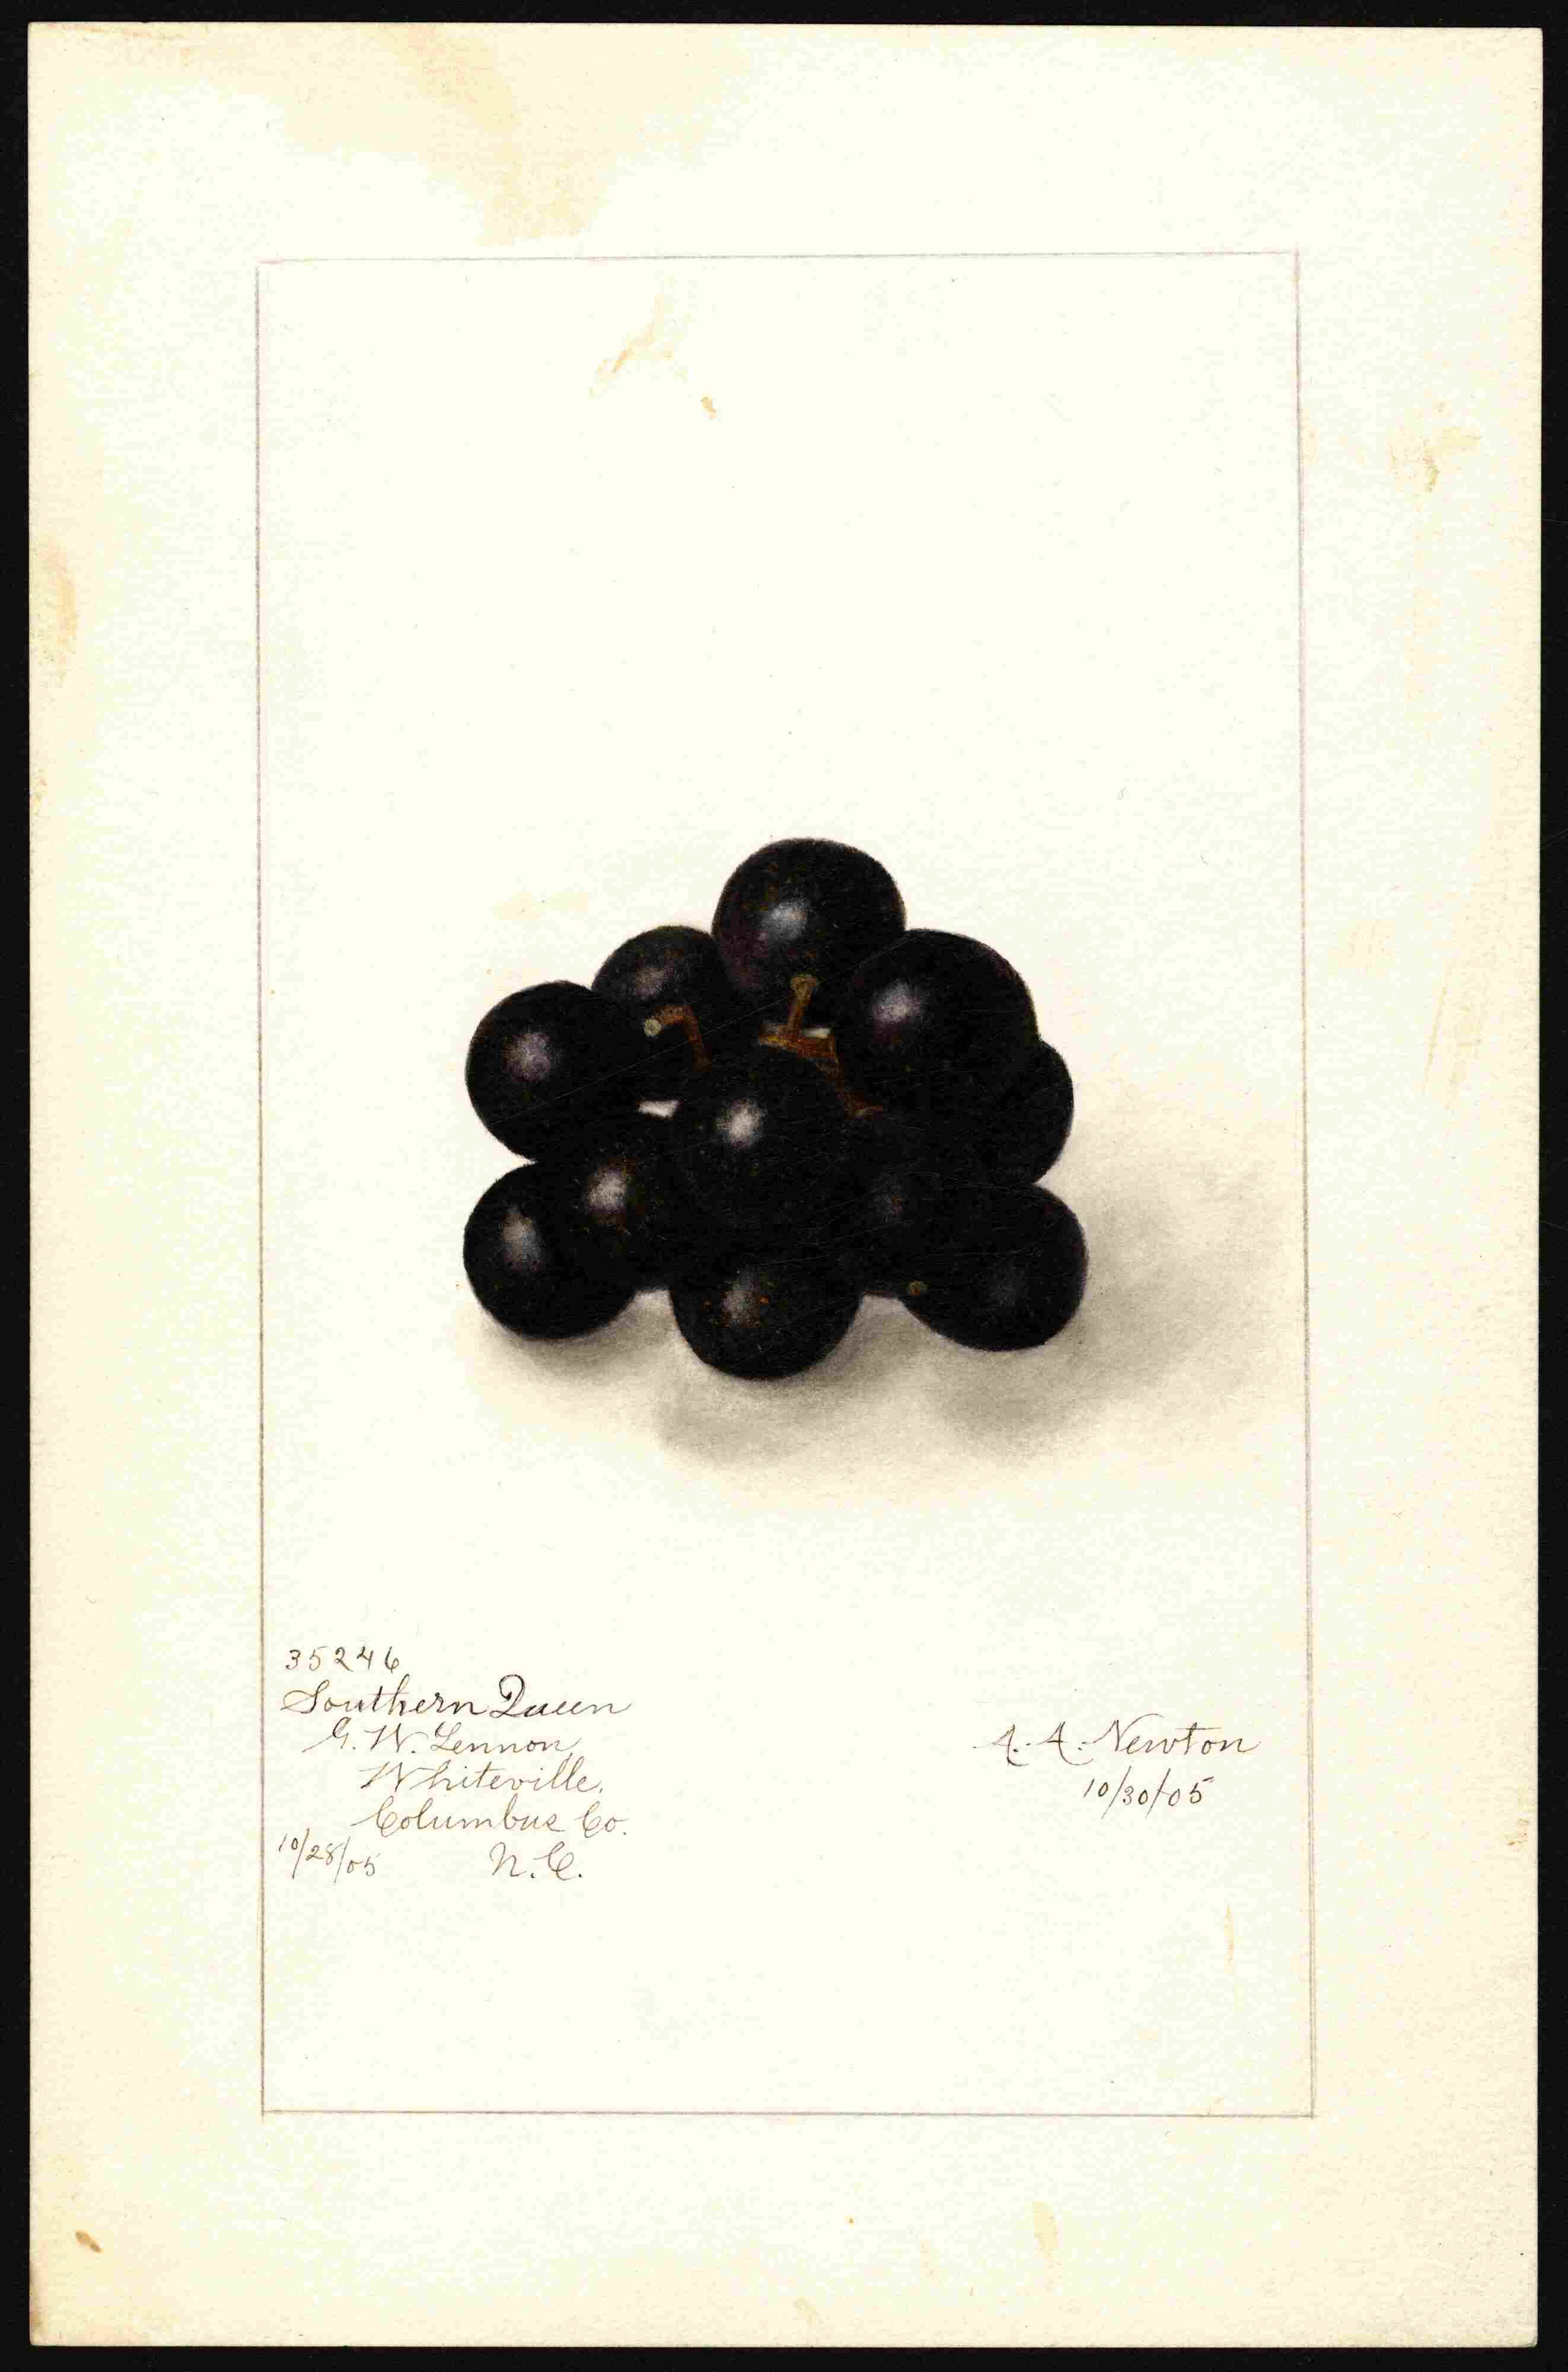 35246
Southern Queen
G. W. Lennon,
Whiteville,
Columbus Co.
10/28/05 N.C.
A. A. Newton
10/30/05